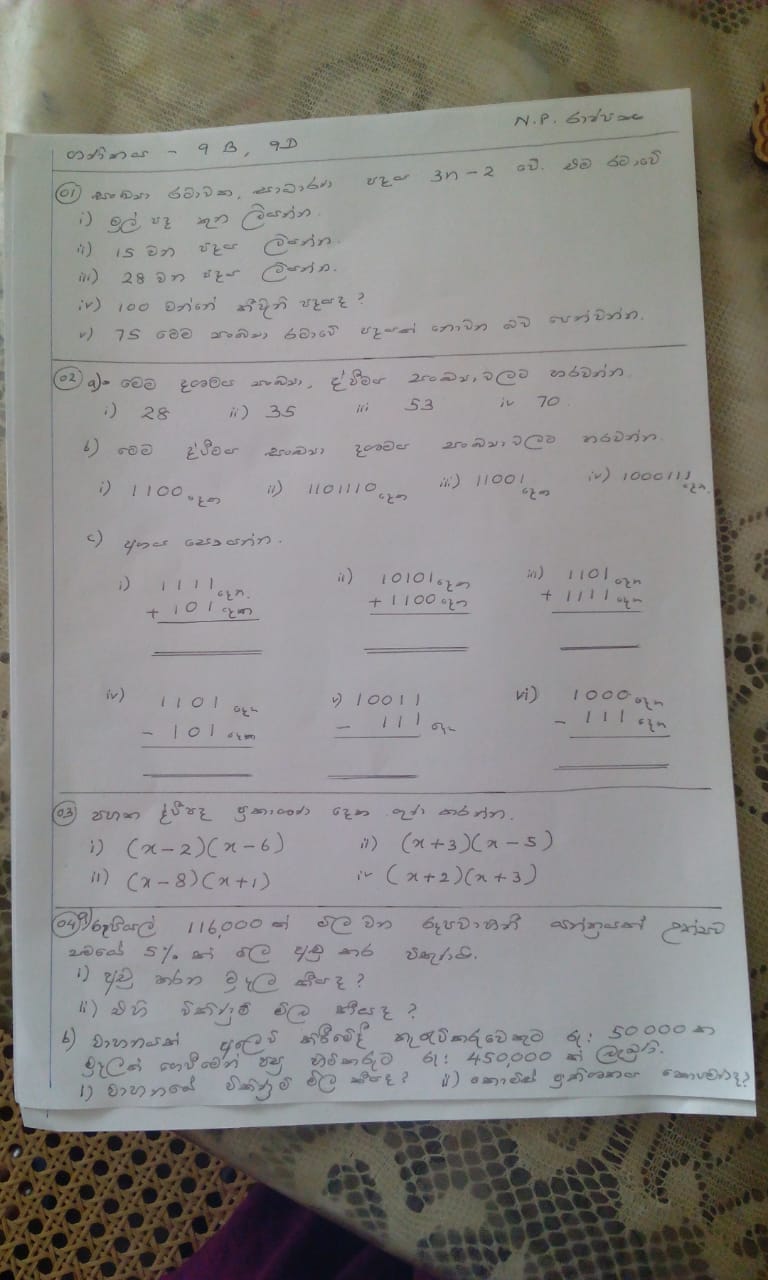 ගණිතය - 9 B, 9D
N.P. රාජපක්ෂ
01 සංඛ්‍යා රටාවක, සාධාරණ පදය 3n - 2 වේ. එම රටාවේ
i) මුල් පද තුන ලියන්න.
ii) 15 වන පදය ලියන්න.
iii) 28 වන පදය ලියන්න.
iv) 100 වන්නේ කීවැනි පදයද ?
v) 75 මෙම සංඛ්‍යා රටාවේ පදයක් නොවන බව පෙන්වන්න.
02 a) මෙම දශමය සංඛ්‍යා, ද්වීමය සංඛ්‍යා වලට හරවන්න.
i) 28 ii) 35 iii 53 iv 70
b) මෙම ද්වීමය සංඛ්‍යා දශමය සංඛ්‍යා වලට හරවන්න.
i) 1100 දෙක ii) 1101110 දෙක iii) 11001 දෙක iv) 1000111 දෙක.
c) අගය සොයන්න.
i) 1111 දෙක. ii) 10101 දෙක iii) 1101 දෙක
+ 101 දෙක + 1100 දෙක + 1111 දෙක
iv) 1101 දෙක v) 10011 vi) 1000 දෙක
- 101 දෙක - 111 දෙක - 111 දෙක
03 පහත ද්වීපද ප්‍රකාශන දෙක ගුණ කරන්න.
i) (x-2)(x-6) ii) (x+3)(x-5)
ii) (x-8)(x+1) iv (x+2)(x+3)
04 a) රුපියල් 116,000 ක් මිල වන රූපවාහිනී යන්ත්‍රයක් උත්සව
සමයේ 5% ක් මිල අඩු කර විකුණයි.
i) අඩු කරන මුදල කීයද ?
ii) එහි විකුණුම් මිල කීයද ?
b) වාහනයක් අලෙවි කිරීමේදී තැරැව්කරුවෙකුට රු: 50000 ක
මුදලක් ගෙවීමෙන් පසු හිමිකරුට රු: 450,000 ක් ලැබුණි.
i) වාහනයේ විකුණුම් මිල කීයද ? ii) කොමිස් ප්‍රතිශතය කොපමණද ?